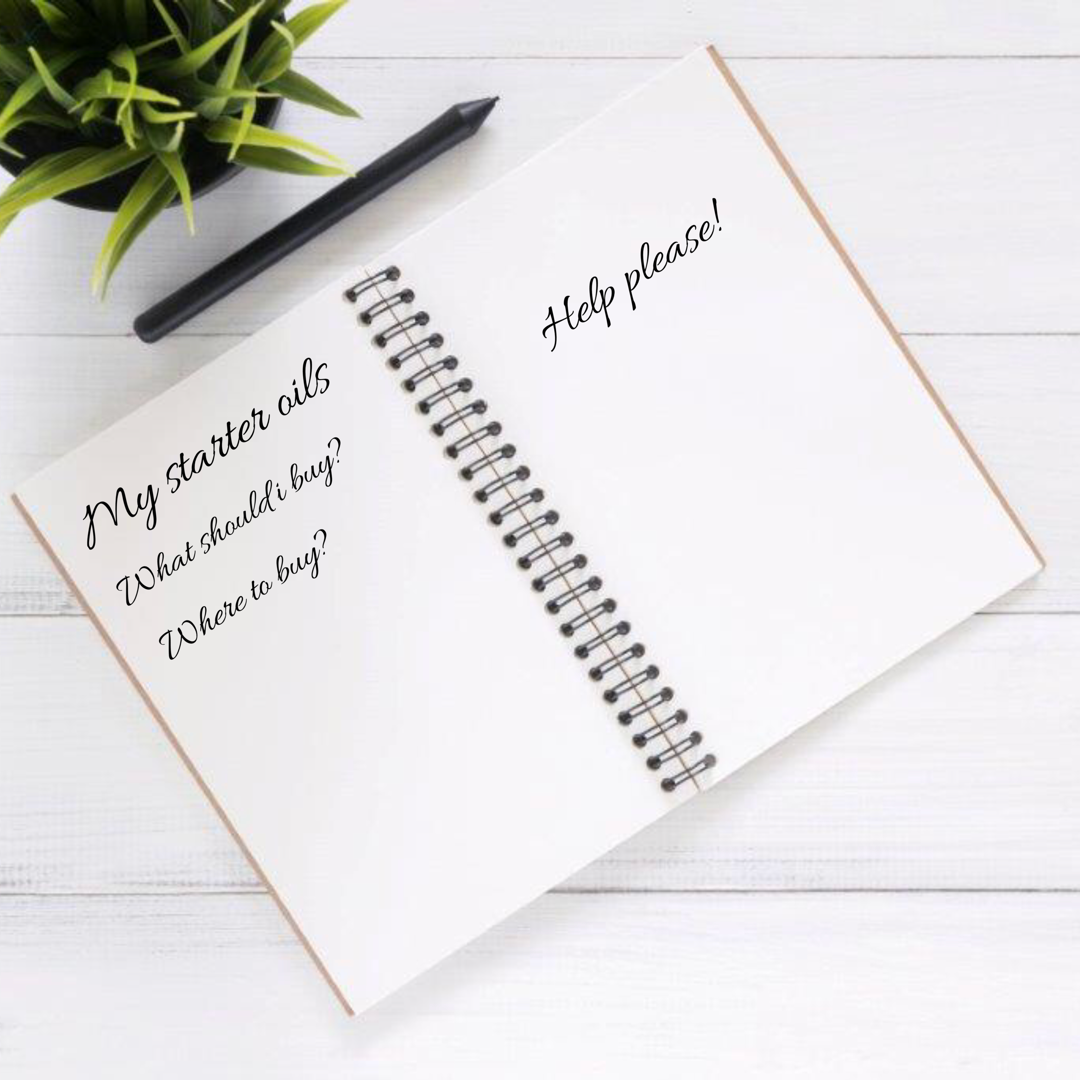 My starter oils
What should i buy?
Where to buy?
Help please!